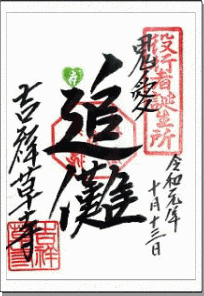 役行者誕生所
令和元年
十月十三日
追儺
吉祥草寺
吉祥
草寺